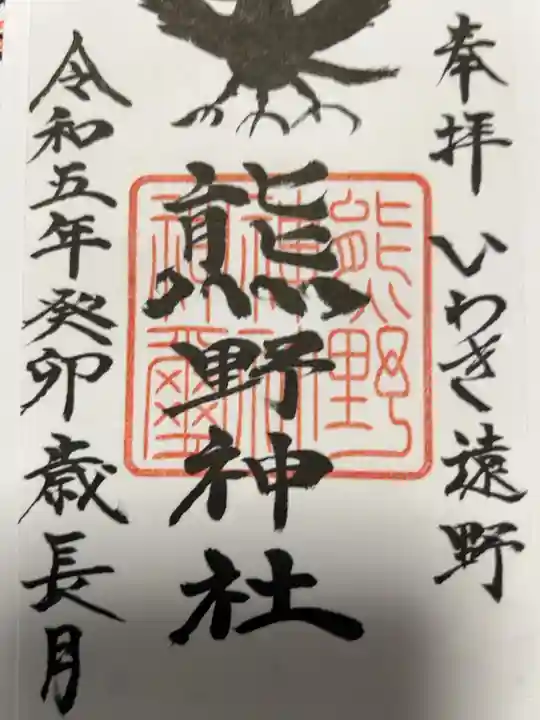 奉拝 いわき遠野
熊野神社
令和五年癸卯歳長月
熊野
神社